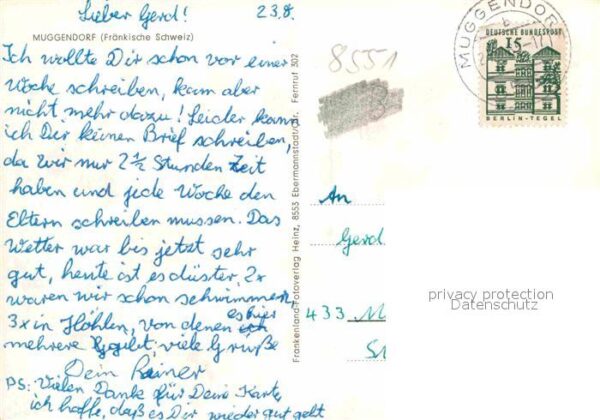 Lieber Gerd! 23.8.
MUGGENDORF (Fränkische Schweiz)
Ich wollte Dir schon vor einer
Woche schreiben, kam aber
nicht mehr dazu! Leider kann
ich Dir keinen Brief schreiben,
da wir nur 2½ Stunden Zeit
haben und jede Woche den
Eltern schreiben mussen. Das
Wetter war bis jetzt sehr
gut, heute ist es düster. 2x
waren wir schon schwimmen,
3x in Höhlen, von denen es hier
mehrere gibt; viele Grüße
Dein Rainer
PS: Vielen Dank für Deine Karte
ich hoffe, daß es Dir wieder gut geht
Frankenland-Fotoverlag Heinz, 8553 Ebermannstadt/Ofr. Fernruf 302
8551
MUGGENDORF
b
DEUTSCHE BUNDESPOST
15
BERLIN-TEGEL
An
Gerd
433 M
privacy protection
Datenschutz